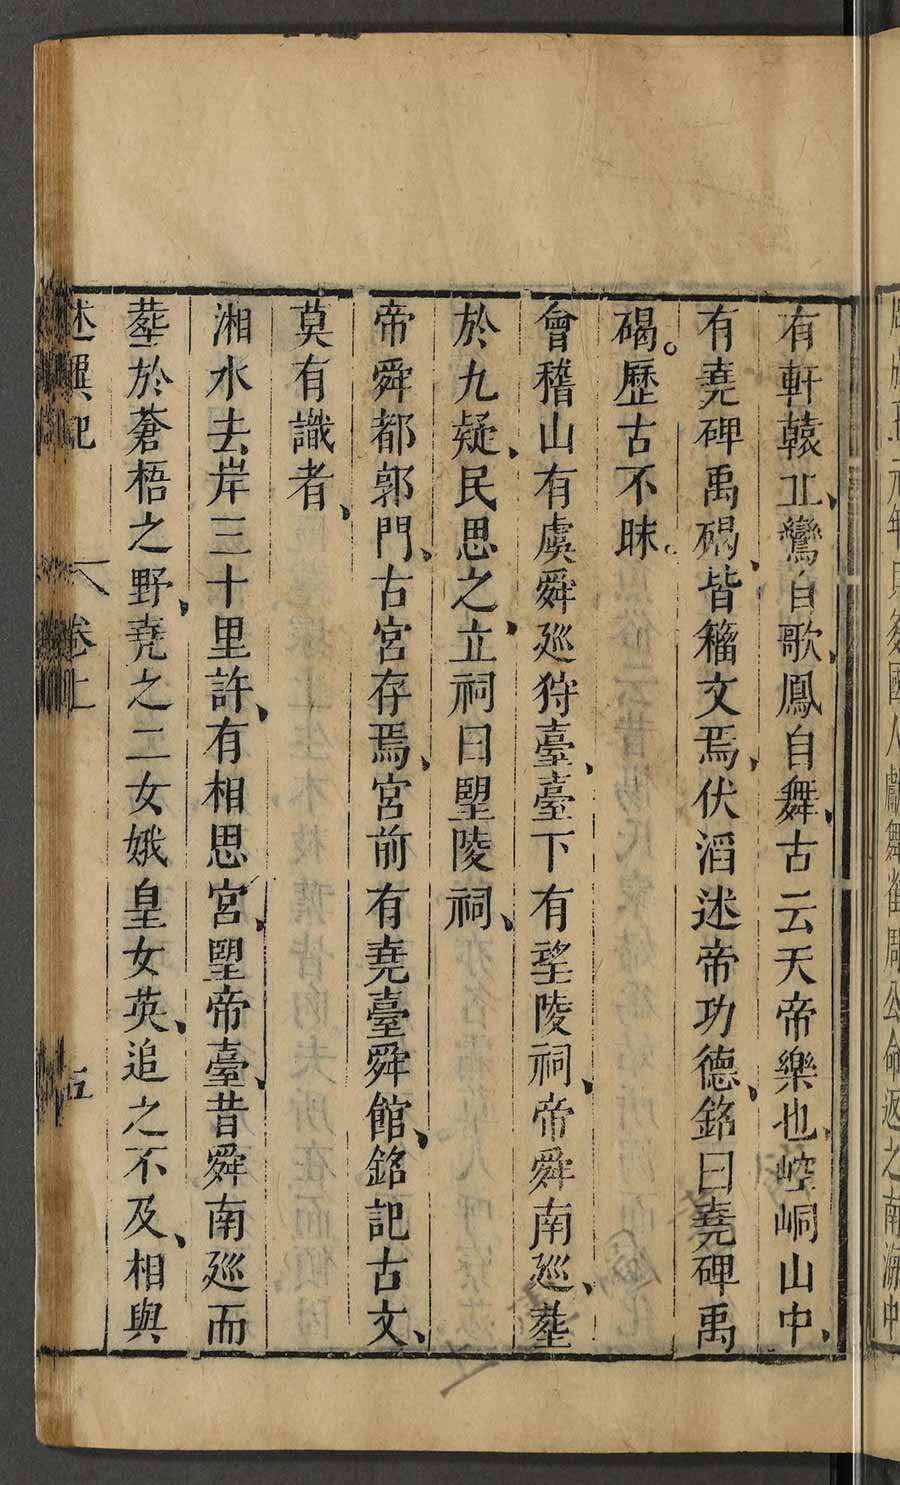 有軒轅丠、鸞自歌、鳳自舞、古云天帝樂也、崆峒山中、
有堯碑禹碣、皆籀文焉、伏滔述帝功德、銘曰堯碑禹
碣。歷古不昧。
會稽山有虞舜廵狩臺、臺下有朢陵祠、帝舜南廵、塟
於九疑、民思之、立祠曰朢陵祠、
帝舜都郭門、古宮存焉、宮前有堯臺舜館、銘記古文、
莫有識者、
湘水去岸三十里許、有相思宮、朢帝臺、昔舜南廵而
塟於蒼梧之野、堯之二女娥皇女英、追之不及、相與
述異記 卷上 五